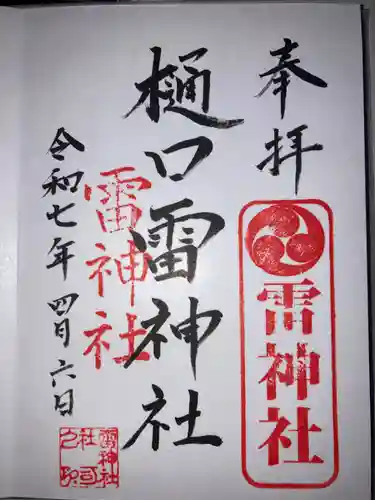 奉拝
雷神社
樋口雷神社
雷神社
令和七年四月六日
雷神社
社司
之印